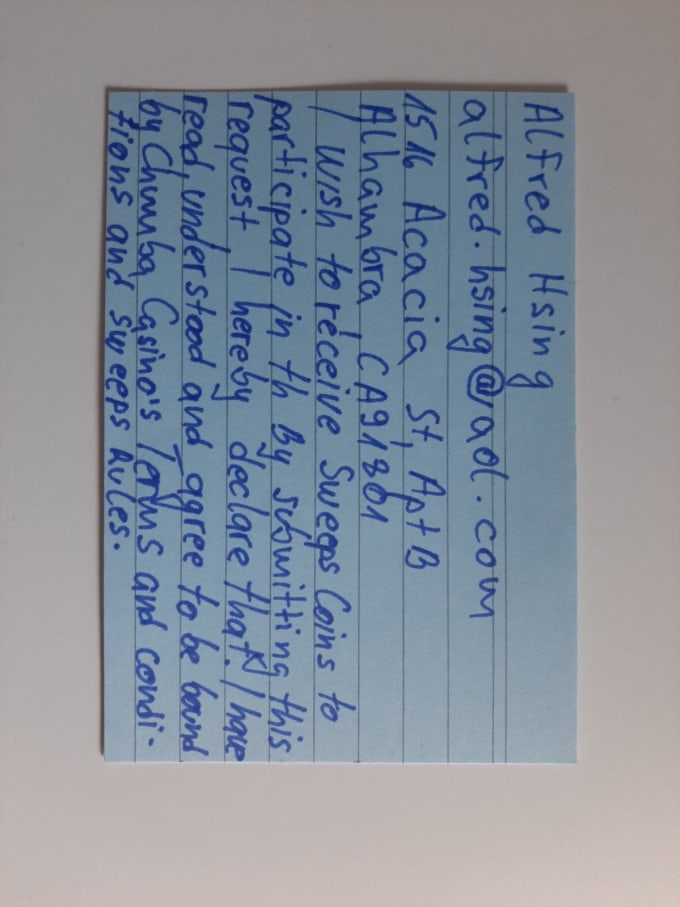 Alfred Hsing
alfred.hsing@aol.com
1516 Acacia St, Apt B
Alhambra CA 91801
I wish to receive Sweeps Coins to
participate in th By submitting this
request I hereby declare that I have
read, understood and agree to be bound
by Chumba Casino's Terms and condi-
tions and sweeps Rules.